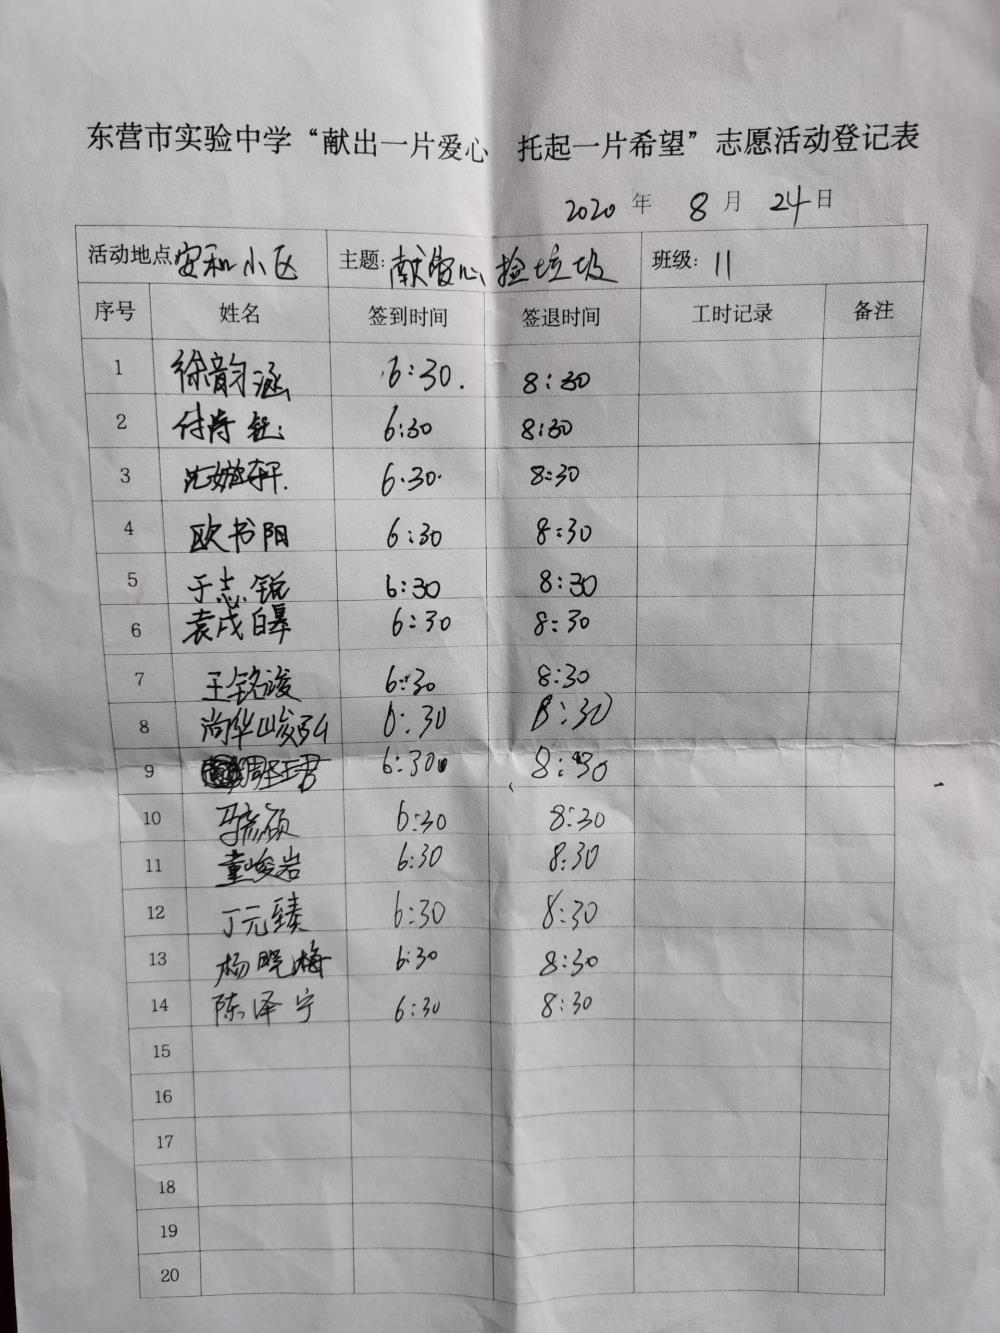 东营市实验中学“献出一片爱心 托起一片希望”志愿活动登记表
2020 年 8 月 24 日
活动地点 安和小区 主题: 献爱心 捡垃圾 班级: 11
序号 姓名 签到时间 签退时间 工时记录 备注
1 徐韵涵 6:30. 8:30
2 付诗钰 6:30 8:30
3 沈 轩. 6:30. 8:30
4 欧书阳 6:30 8:30
5 于志锐 6:30 8:30
6 袁戌皞 6:30 8:30
7 王铭浚 6:30 8:30
8 尚华峻弘 6:30 8:30
9 君 6:30 8:30
10 马 硕 6:30 8:30
11 董峻岩 6:30 8:30
12 丁元臻 6:30 8:30
13 杨晓梅 6:30 8:30
14 陈泽宁 6:30 8:30
15
16
17
18
19
20